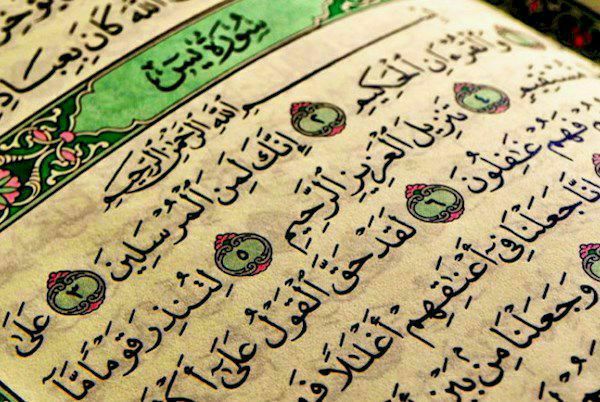 ٱللَّهَ كَانَ بِعِبَادِ
سُورَةُ يسٓ
ٱللَّهِ ٱلرَّحْمَٰنِ ٱلرَّحِيمِ
وَٱلْقُرْءَانِ ٱلْحَكِيمِ ٢ إِنَّكَ لَمِنَ ٱلْمُرْسَلِينَ ٣ عَلَىٰ
مُّسْتَقِيمٍ ٤ تَنزِيلَ ٱلْعَزِيزِ ٱلرَّحِيمِ ٥ لِتُنذِرَ قَوْمًا مَّآ
فَهُمْ غَٰفِلُونَ ٦ لَقَدْ حَقَّ ٱلْقَوْلُ عَلَىٰٓ أَكْ
إِنَّا جَعَلْنَا فِىٓ أَعْنَٰقِهِمْ أَغْلَٰلًا فَهِ
وَجَعَلْنَا مِنۢ بَيْنِ